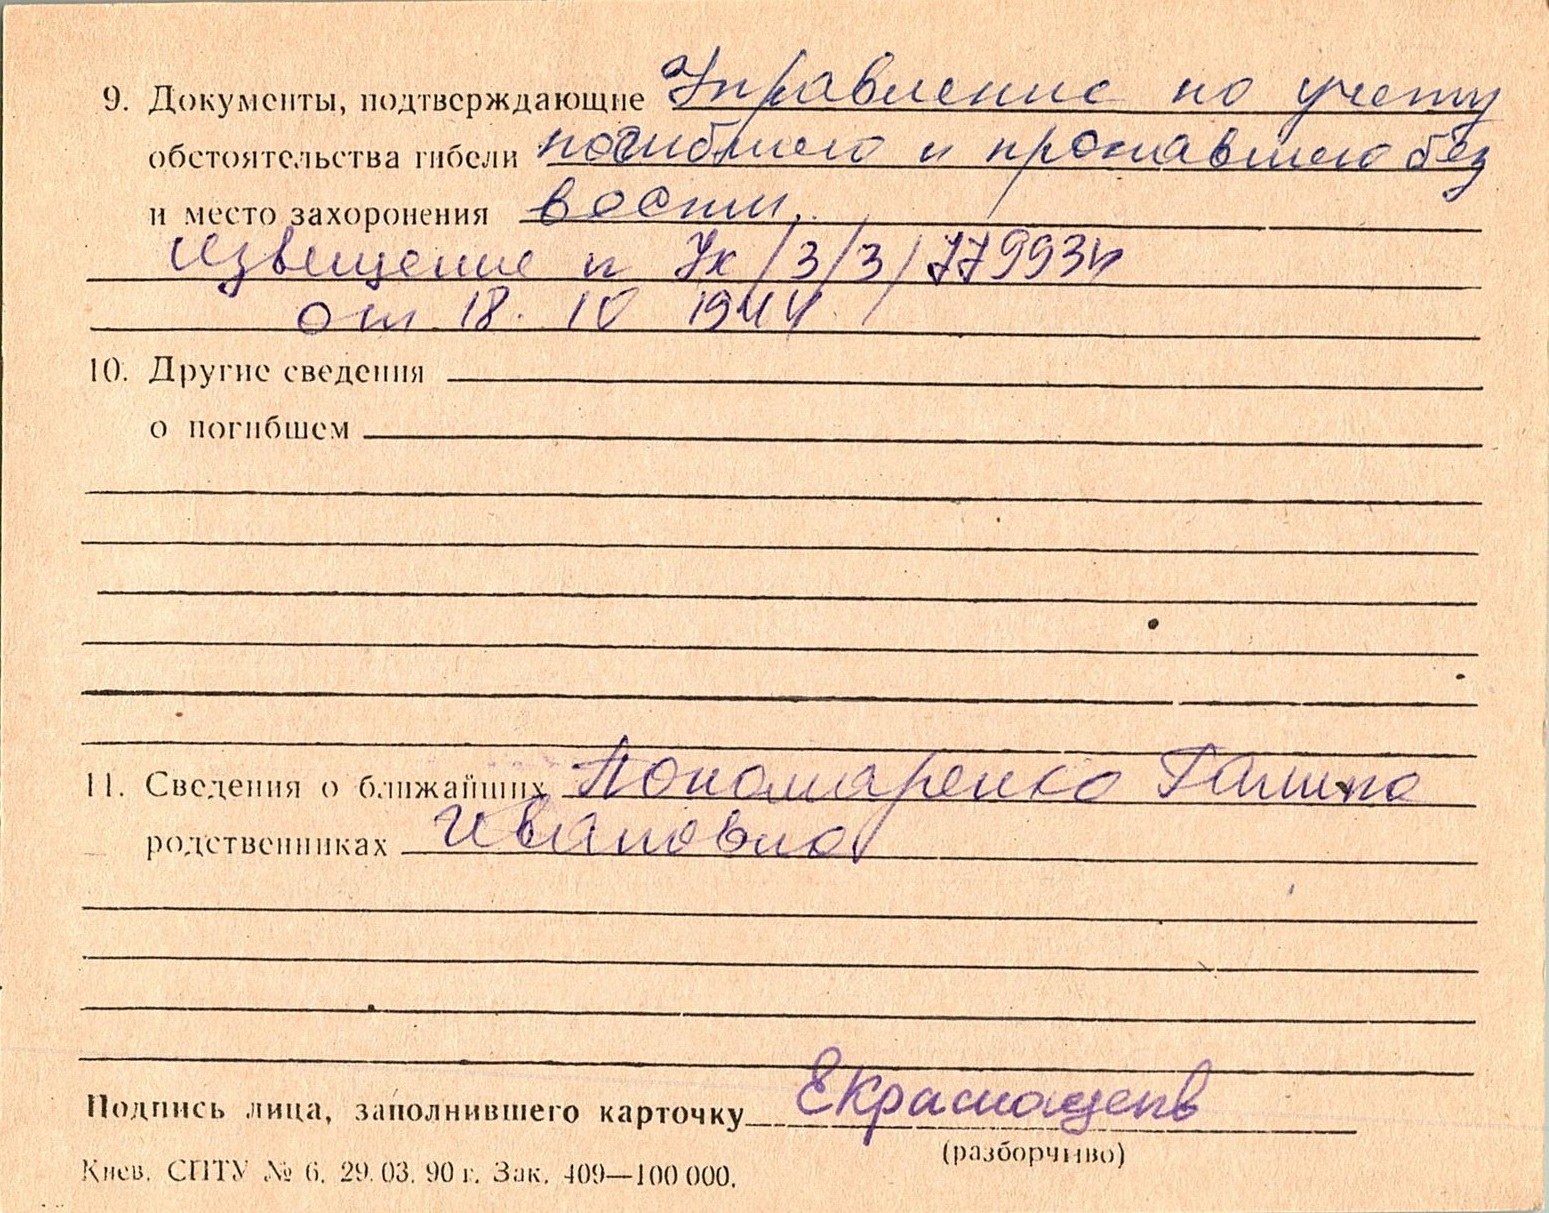 9. Документы, подтверждающие Управление по учету
обстоятельства гибели погибшего и пропавшего без
и место захоронения вести,
извещение n Ук/3/3/77993ч
от 18. 10 1944
10. Другие сведения
о погибшем
11. Сведения о ближайших Пономаренко Галина
родственниках Ивановна
Подпись лица, заполнившего карточку
(разборчиво)
Киев. СПТУ № 6. 29.03.90 г. Зак. 409—100 000.